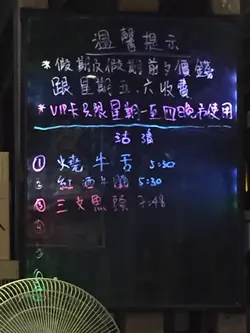 溫馨提示
*假期及假期前夕價錢
跟星期五、六收費
*VIP卡只限星期一至四晚市使用
沽清
① 燒牛舌 5:30
② 紅酒牛 5:30
③ 三文魚頭 7:48
④
⑤